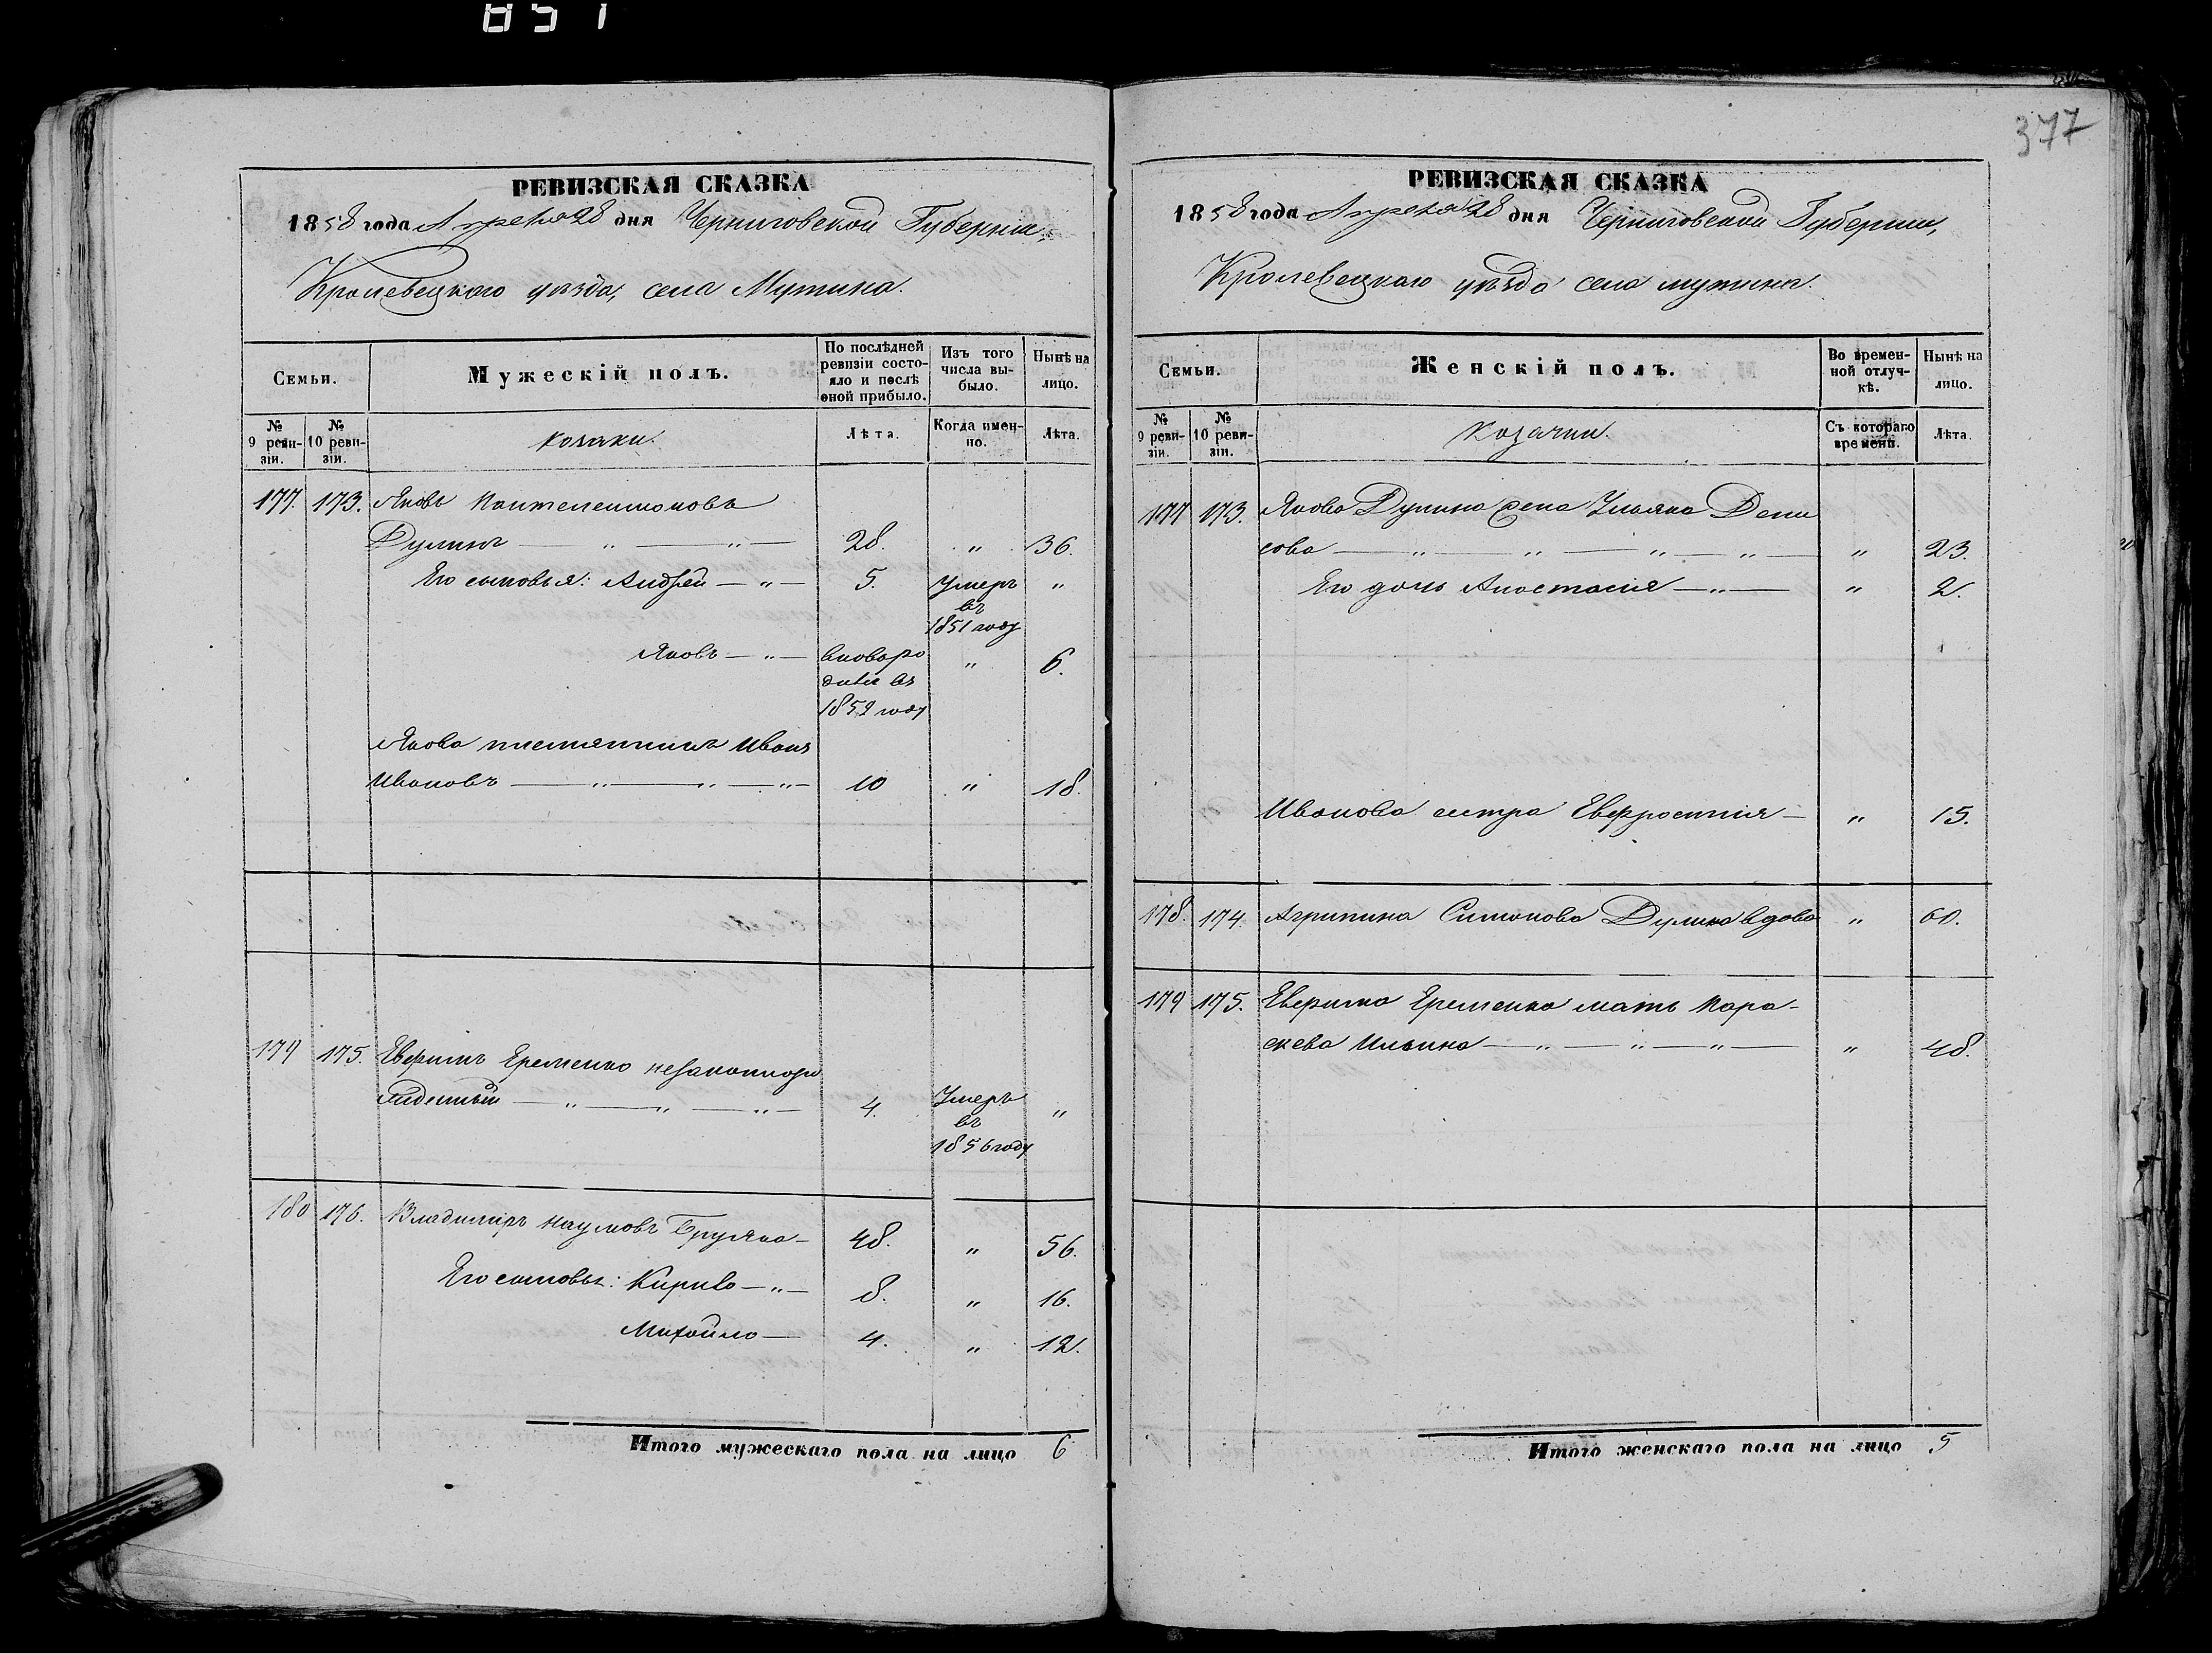 851
377
РЕВИЗСКАЯ СКАЗКА
1858 года Апреля 28 дня Черниговской Губернiи,
Кролевецкаго уѣзда, села Мутина.
Семьи.
Мужескiй полъ.
По послѣдней ревизiи состояло и послѣ оной прибыло.
Изъ того числа выбыло.
Нынѣ на лицо.
№ 9 ревизiи.
№ 10 ревизiи.
козаки.
Лѣта.
Когда именно.
Лѣта.
177. 173. Яковъ Пантелеимоновъ
Дулинъ — " — " — 28. " 36.
Его сыновья: Андрей — " — 5. Умеръ въ 1851 году "
Яковъ — " — вновь родился въ 1852 году " 6.
Якова племянникъ Иванъ
Ивановъ — " — " — " — 10 " 18.
179 175. Еремѣнко незаконнорож
денный — " — " — " — 4. Умеръ въ 1856 году "
180 176. Владимиръ Наумовъ — 48. " 56.
Его сыновья: Кирило — " — 8. " 16.
Михайло — 4. " 12.
Итого мужескаго пола на лицо 6
РЕВИЗСКАЯ СКАЗКА
1858 года Апреля 28 дня Черниговской Губернiи,
Кролевецкаго уѣзда села мутина.
Семьи.
Женскiй полъ.
Во временной отлучкѣ.
Нынѣ на лицо.
№ 9 ревизiи.
№ 10 ревизiи.
Козачки.
Съ котораго времени.
Лѣта.
177 173. Якова Дулина жена Ульяна Дени
сова — " — " — " — " — " 23.
Его дочь Анастасiя — " — " 2.
Иванова сестра Евфросинiя — " 15.
178. 174. Агрипина Симонова Дулина вдова " 60.
179 175. Еременка мать Пара-
скева Ильина — " — " — " — " 48.
Итого женскаго пола на лицо 5